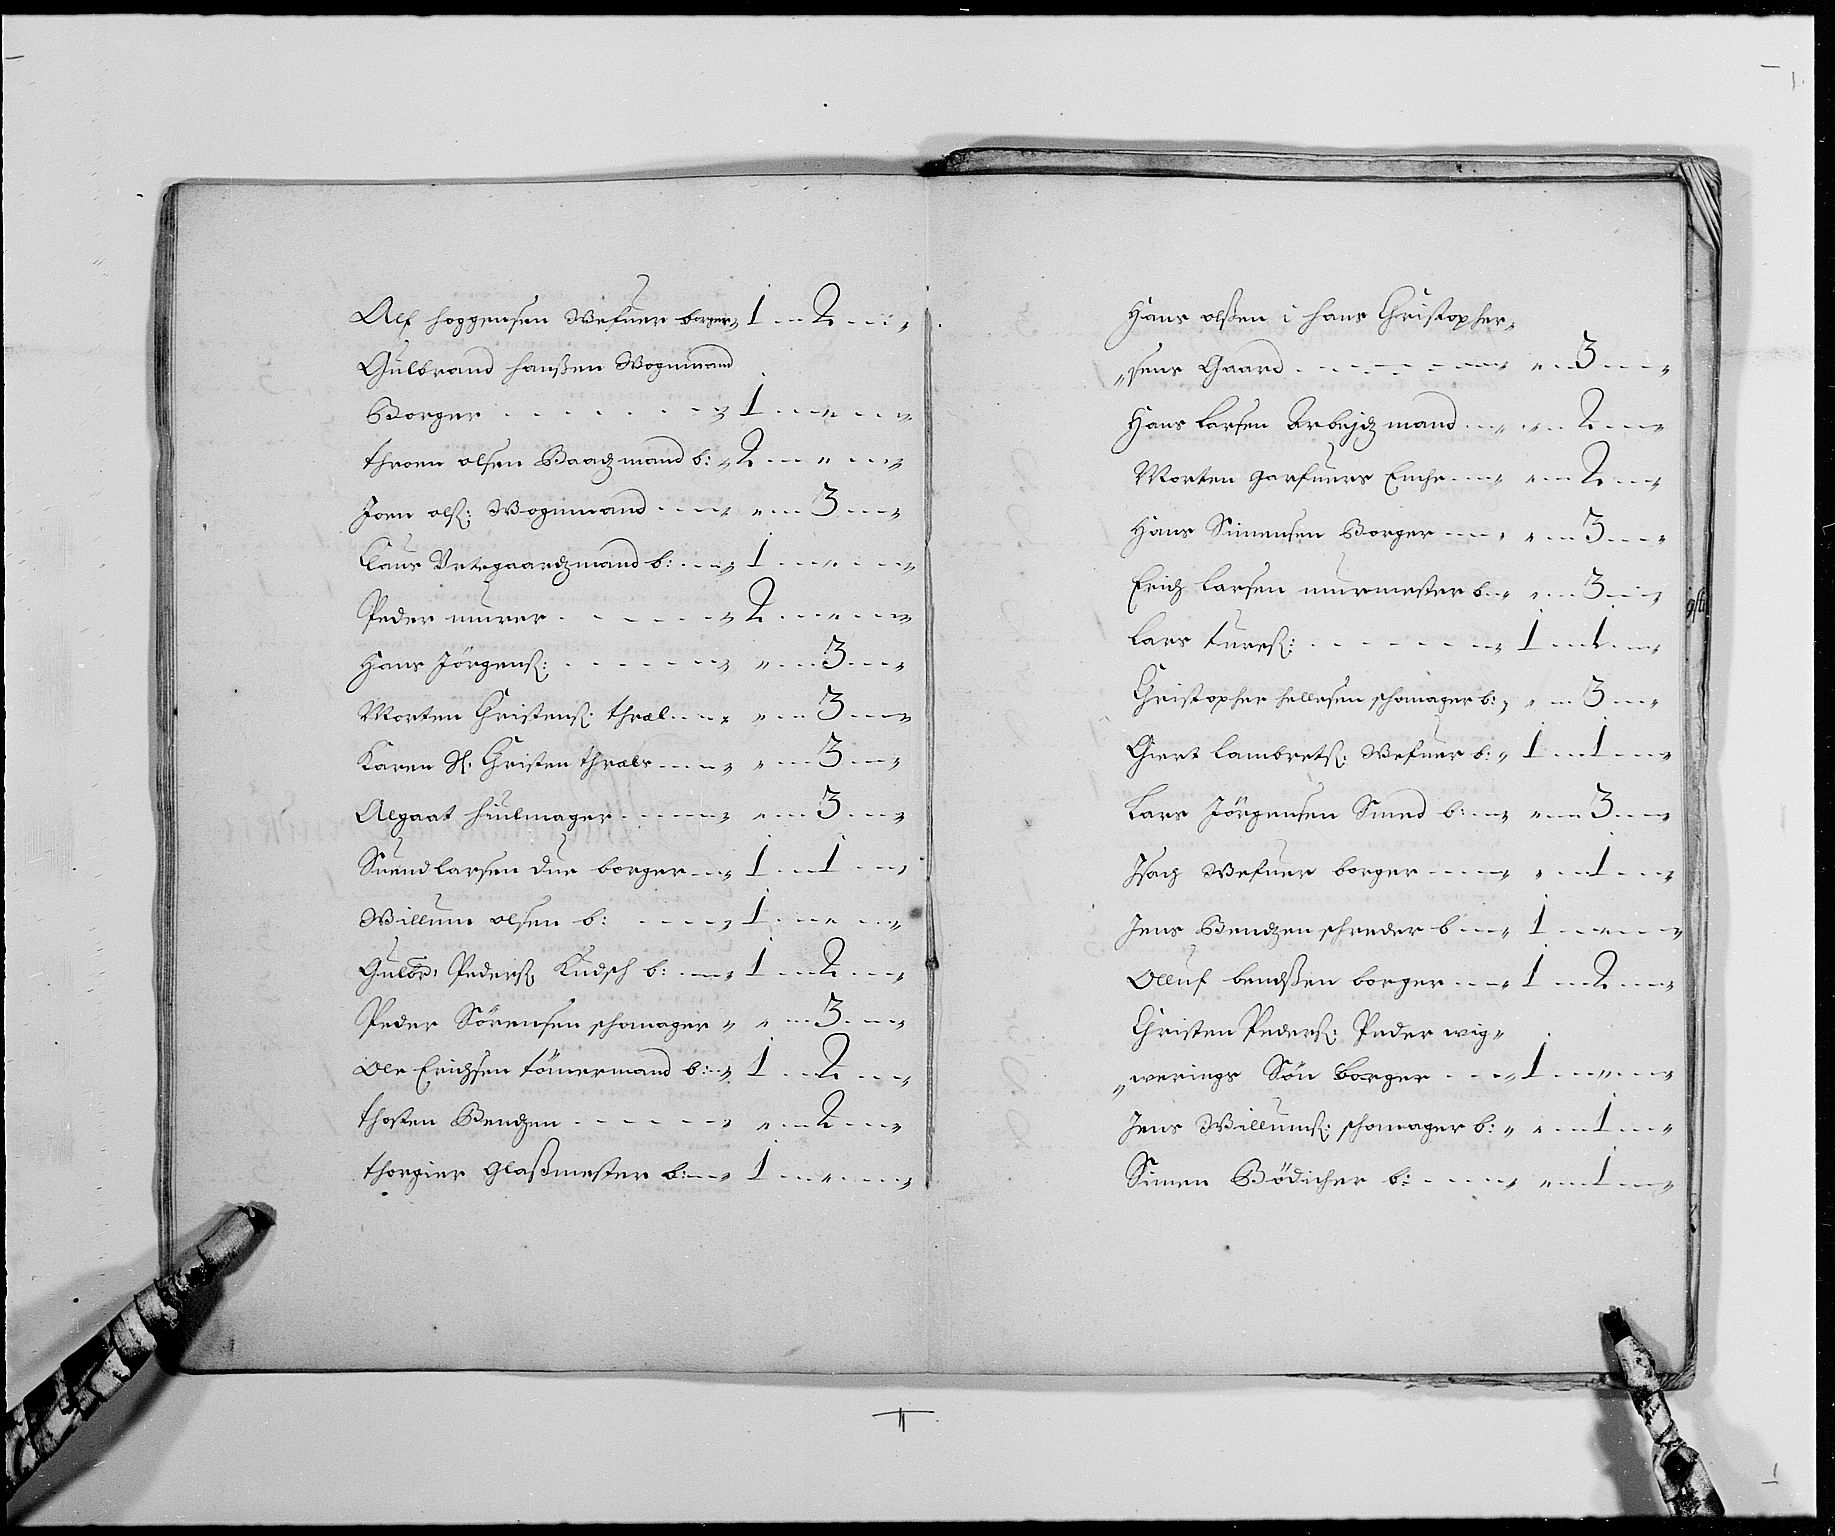 Alf hoggensen Wefuer borger 1 - 2 - „
Gulbrand hanßen Wognmand
Borger 1 - „ - „
throen olsen Baadzmand b: 2 - „ - „
Joen olß: Wognmand „ - 3 - „
Claus Urtegaardzmand b: 1 - „ - „
Peder murer 2 - „ - „
Hans Jörgenß: „ - 3 - „
Morten Christenß: thræl „ - 3 - „
Karen Sl. Christen thræls „ - 3 - „
Algaat hiulmager „ - 3 - „
Suend larsen due borger 1 - 1 - „
Willum olsen b: 1 - „ - „
Gulbr: Pederß: Kudsch b: 1 - 2 - „
Peder Sörensen schomager „ - 3 - „
Ole Erichsen tömermand b: 1 - 2 - „
thosten Bendzen „ - 2 - „
thorgier Glaßmester b: 1 - „ - „
Hans olßen i hans Christopher„
„sens Gaard „ - 3 - „
Hans larsen Arbejdzmand „ - 2 - „
Morten garfuers Enche „ - 2 - „
Hans Simensen Borger „ - 3 - „
Erich larsen murmester b: „ - 3 - „
Lars tureß: 1 - 1 - „
Christopher hellesen schomager b: „ - 3 - „
Giert Lambretß: Wefuer b: 1 - 1 - „
Lars Jörgensen Smed b: „ - 3 - „
Isach Wefuer borger „ - 1 - „
Jens Bendzen schreder b 1 - „ - „
Olluf bendßen borger 1 - 2 - „
Christen Pederß: Peder wig„
„werings Sön borger 1 - „ - „
Jens Willumß: schomager b: „ - 1 - „
Simen Bödicher b: „ - 1 - „